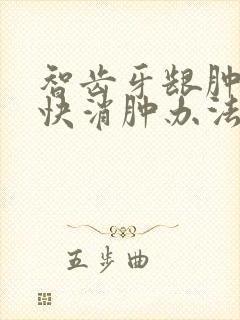 智齿牙龈肿
快消肿办法
五步曲